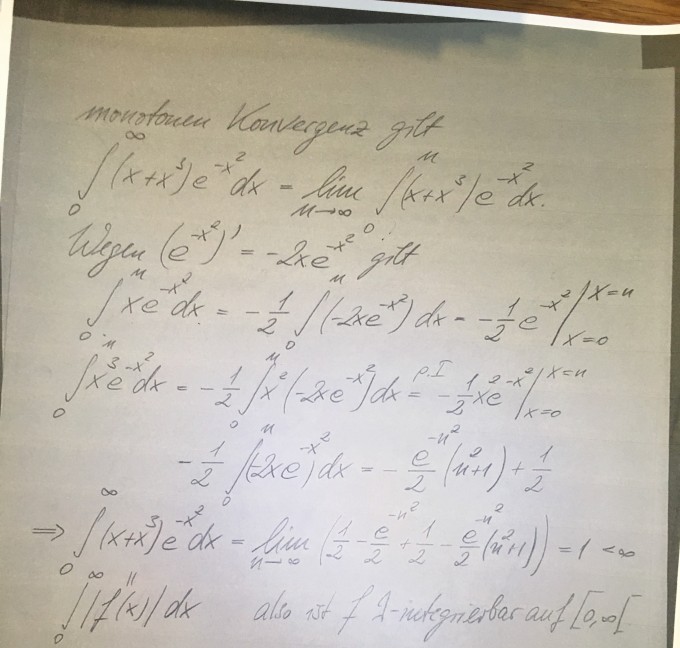 monotonen Konvergenz gilt
∫₀^∞ (x+x³)e^{-x²} dx = lim_{n→∞} ∫₀^n (x+x³)e^{-x²} dx.
Wegen (e^{-x²})' = -2xe^{-x²} gilt
∫₀^n xe^{-x²} dx = -1/2 ∫₀^n (-2xe^{-x²}) dx = -1/2 e^{-x²} |_{x=0}^{x=n}
∫₀^n x³e^{-x²} dx = -1/2 ∫₀^n x²(-2xe^{-x²}) dx =^{p.I} -1/2 x²e^{-x²} |_{x=0}^{x=n}
-1/2 ∫₀^n (-2xe^{-x²}) dx = -e^{-n²}/2 (n²+1) + 1/2
⇒ ∫₀^∞ (x+x³)e^{-x²} dx = lim_{n→∞} (1/2 - e^{-n²}/2 + 1/2 - e^{-n²}/2 (n²+1)) = 1 < ∞
||
∫₀^∞ |f(x)| dx also ist f L-integrierbar auf [0,∞[